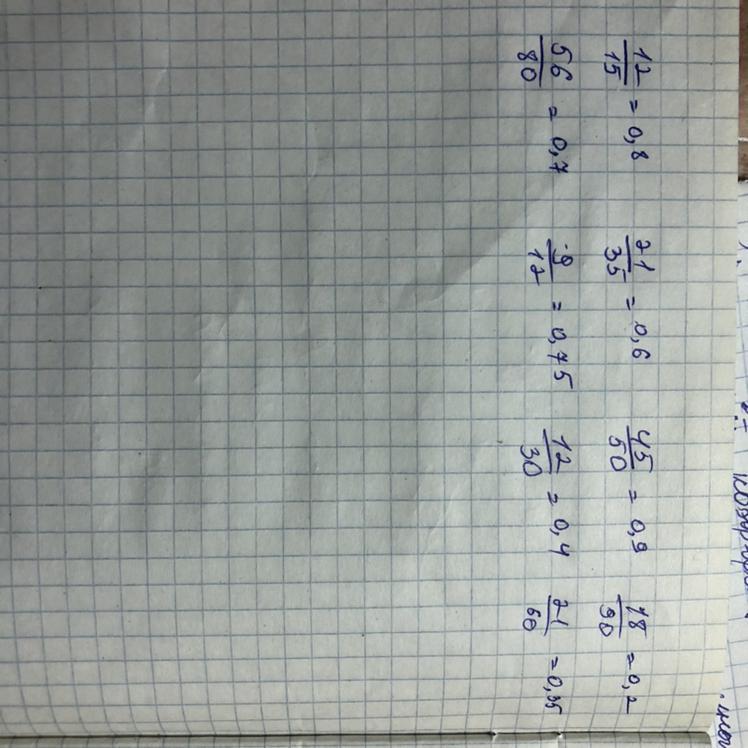 12/15 = 0,8 21/35 = 0,6 45/50 = 0,9 18/90 = 0,2
56/80 = 0,7 9/12 = 0,75 12/30 = 0,4 21/60 = 0,35